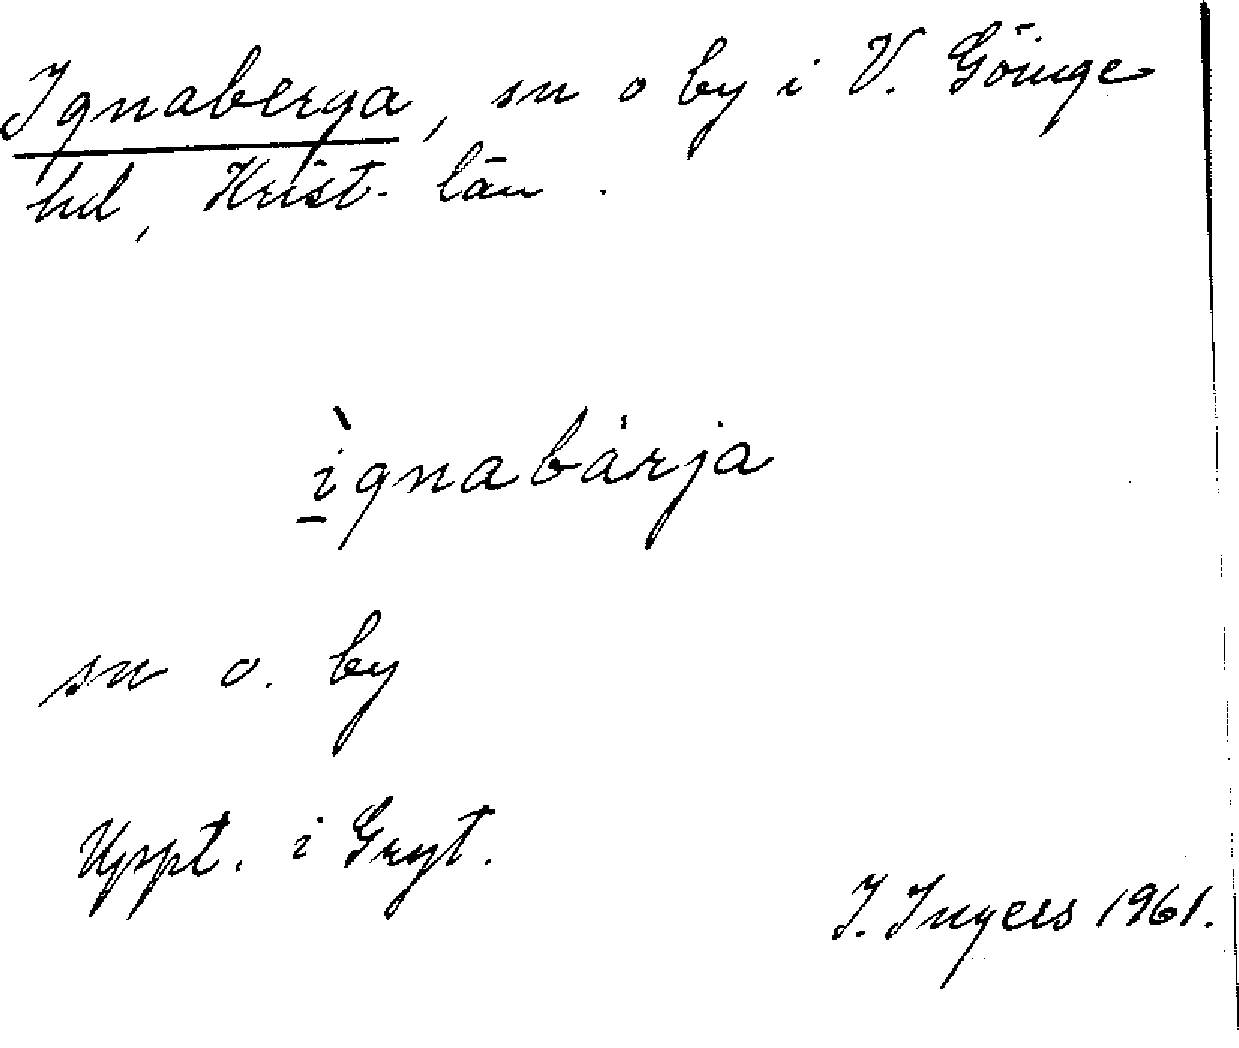 Ignaberga, sn o by i V. Göinge
hd, Krist. län.
ìgnabärja
sn o. by
Uppt. i Gryt.
I. Ingers 1961.